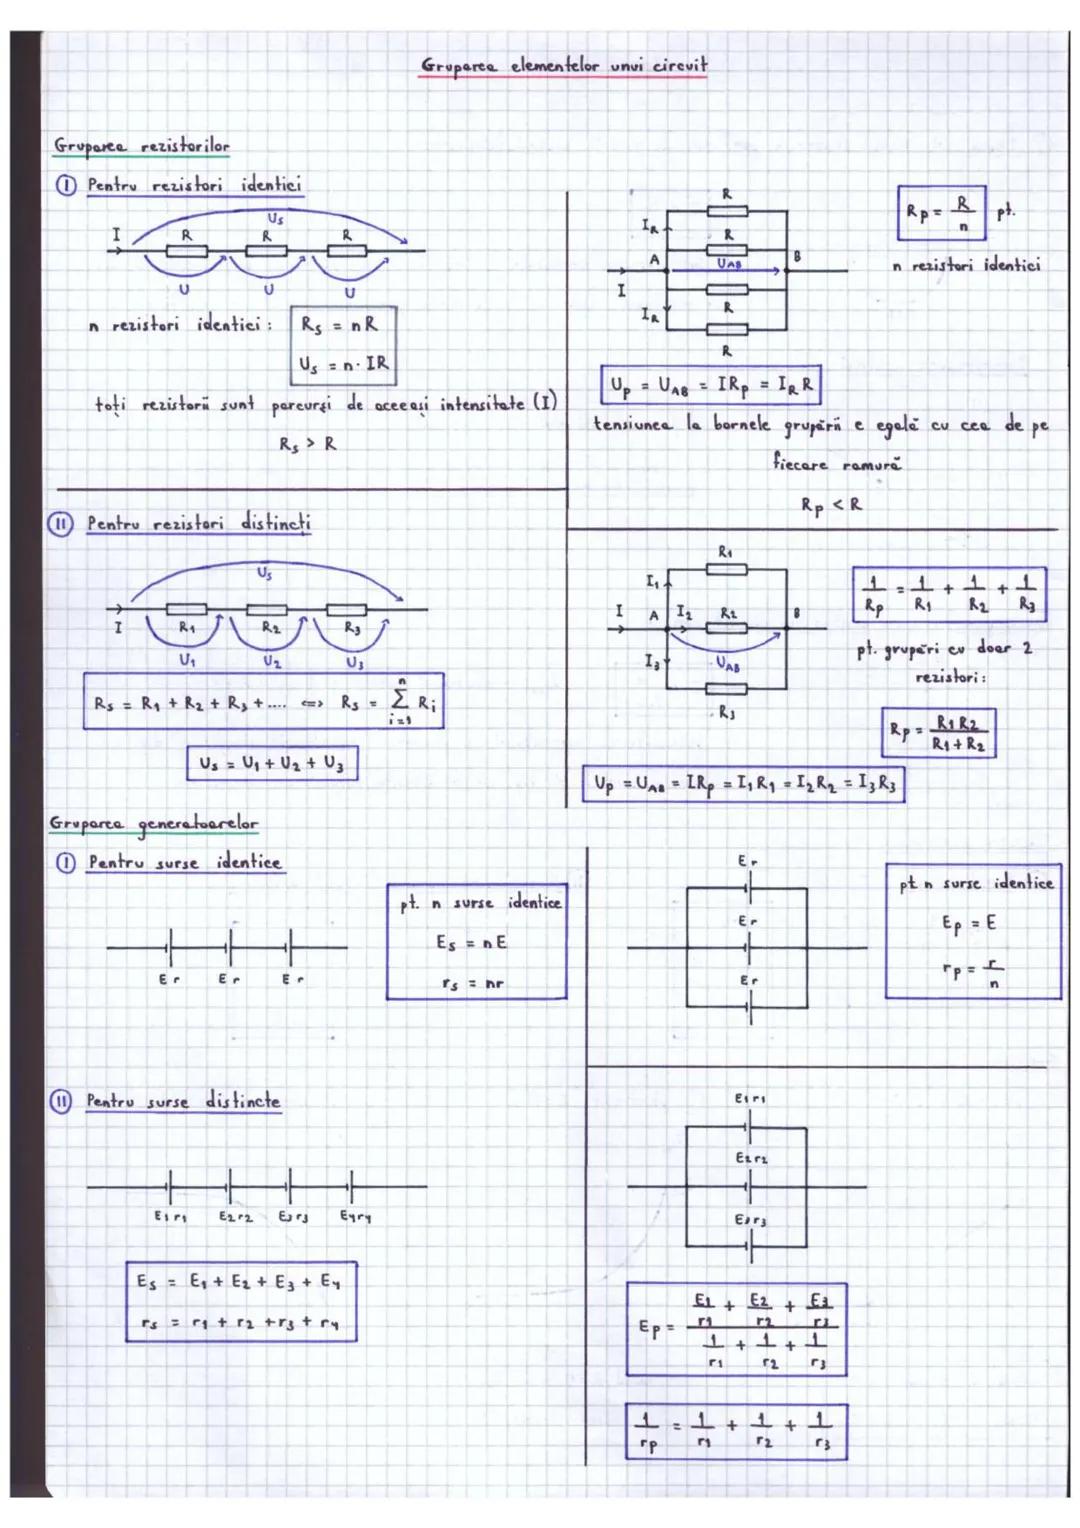 Gruparea elementelor unui circuit
Gruparea rezistorilor
I Pentru rezistori identici
Us
I R R R
U U U
n rezistori identici : Rs = nR
Us = n · IR
toți rezistorii sunt parcurși de aceeași intensitate (I)
Rs > R
R
IR
R
A UAB B
I
R
IR
R
Rp = R/n pt.
n rezistori identici
Up = UAB = IRp = IR R
tensiunea la bornele grupării e egală cu cea de pe
fiecare ramură
Rp < R
II Pentru rezistori distincți
Us
I R1 R2 R3
U1 U2 U3
Rs = R1 + R2 + R3 + .... <=> Rs = n Σ i=1 Ri
Us = U1 + U2 + U3
R1
I1
I A I2 R2 B
I3 UAB
R3
1/Rp = 1/R1 + 1/R2 + 1/R3
pt. grupări cu doar 2
rezistori :
Rp = R1 R2 / R1 + R2
Up = UAB = IRp = I1 R1 = I2 R2 = I3 R3
Gruparea generatoarelor
I Pentru surse identice
E r E r E r
pt. n surse identice
Es = nE
rs = nr
E r
E r
E r
pt n surse identice
Ep = E
rp = r/n
II Pentru surse distincte
E1 r1 E2 r2 E3 r3 E4 r4
Es = E1 + E2 + E3 + E4
rs = r1 + r2 + r3 + r4
E1 r1
E2 r2
E3 r3
Ep = (E1/r1 + E2/r2 + E3/r3) / (1/r1 + 1/r2 + 1/r3)
1/rp = 1/r1 + 1/r2 + 1/r3